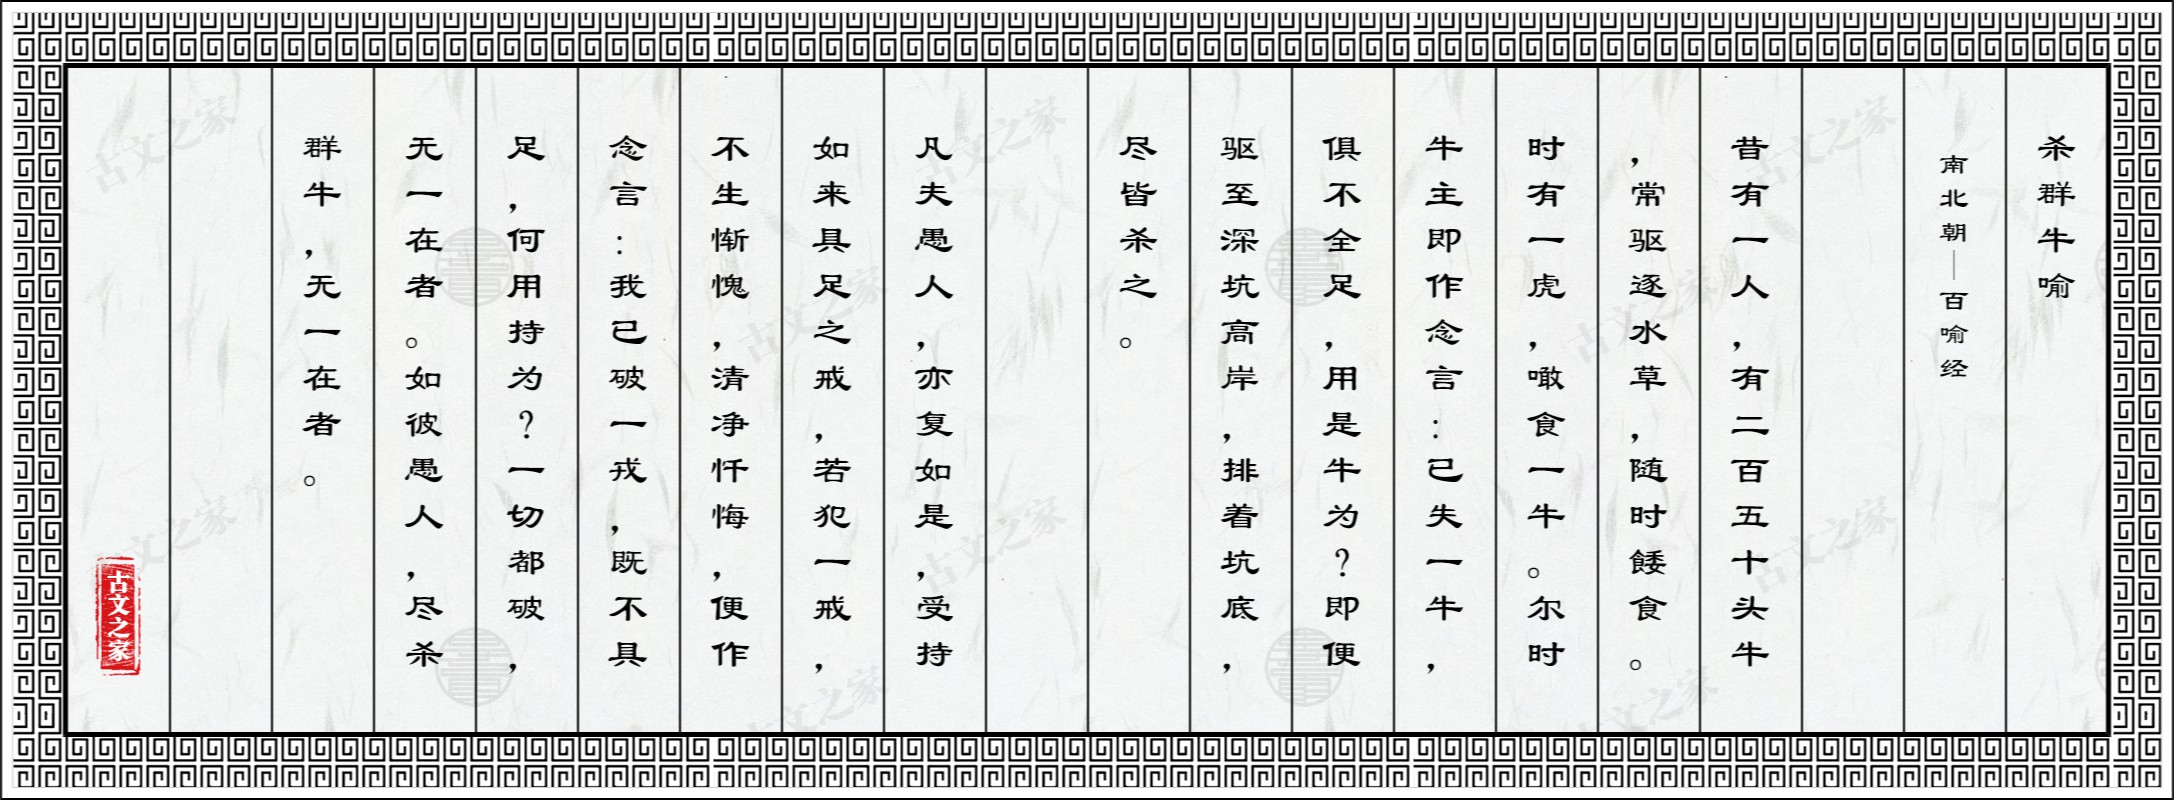 杀群牛喻
南北朝—百喻经
昔有一人，有二百五十头牛
，常驱逐水草，随时餧食。
时有一虎，噉食一牛。尔时
牛主即作念言：已失一牛，
俱不全足，用是牛为？即便
驱至深坑高岸，排着坑底，
尽皆杀之。
凡夫愚人，亦复如是，受持
如来具足之戒，若犯一戒，
不生惭愧，清净忏悔，便作
念言：我已破一戎，既不具
足，何用持为？一切都破，
无一在者。如彼愚人，尽杀
群牛，无一在者。
古文之家